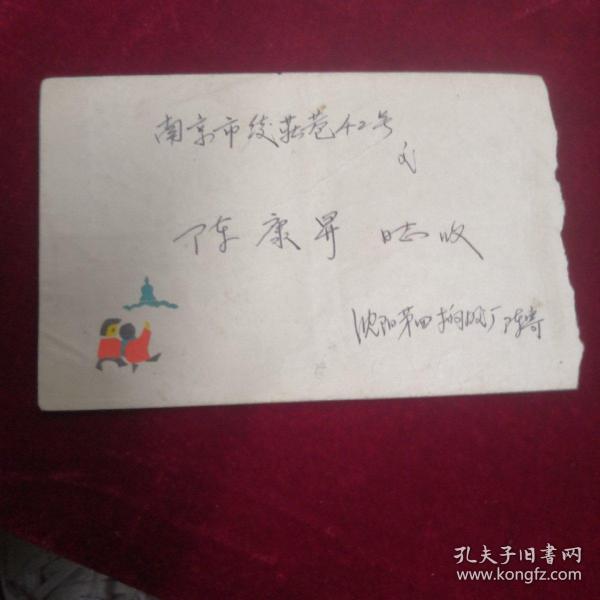 南京市绫庄巷42号
陈康昇 同志收
沈阳第四橡胶厂 陈寄
孔夫子旧书网
www.kongfz.com